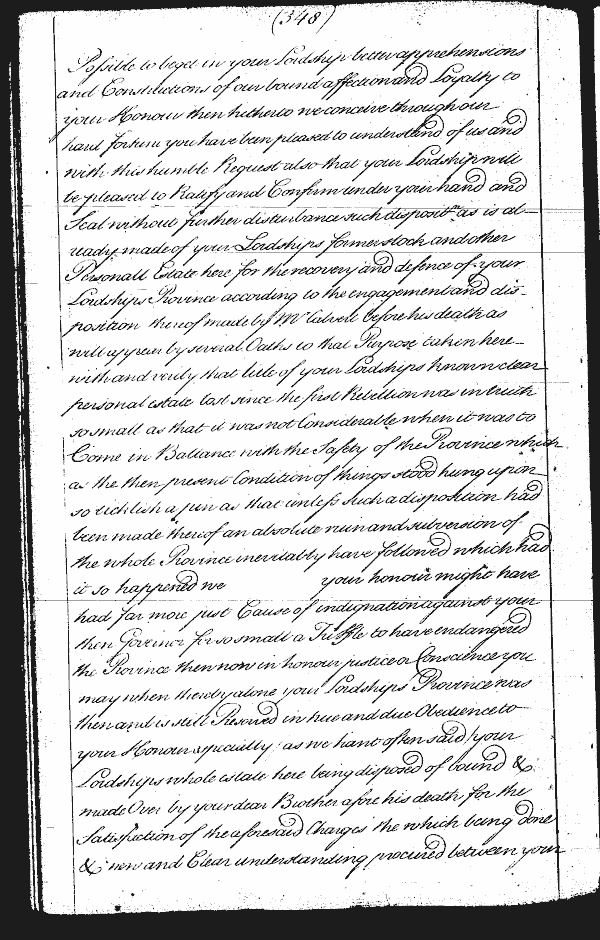 (348)
Possible to beget in your Lordship better apprehensions
and Constructions of our bound affection and Loyalty to
your Honour then hitherto we conceive through our
hard fortune you have been pleased to understand of us and
with this humble Request also that your Lordship will
be pleased to Ratify and Confirm under your hand and
Seal without further disturbance such disposit:ⁿ as is al-
ready made of your Lordships former stock and other
Personall Estate here for the recovery and defence of your
Lordships Province according to the engagement and dis-
position thereof made by Mʳ Calvert before his death as
will appear by several Oaths to that Purpose taken here-
with and verily that little of your Lordships known clear
personal estate lost since the first Rebellion was in truth
so small as that it was not Considerable when it was to
Come in Ballance with the Safety of the Province which
as the then present Condition of things stood hung upon
so ticklish a pin as that unless such a disposition had
been made thereof an absolute ruin and subversion of
the whole Province inevitably have followed which had
it so happened we your honour might have
had far more just Cause of indignation against your
then Governor for so small a Triffle to have endangered
the Province then now in honour justice or Conscience you
may when thereby alone your Lordships Province was
then and is still Preserved in true and due Obedience to
your Honour especially as we have often said your
Lordships whole estate here being disposed of bound &
made Over by your dear Brother afore his death for the
Satisfaction of the aforesaid Charges the which being done
& new and Clear understanding procured between your